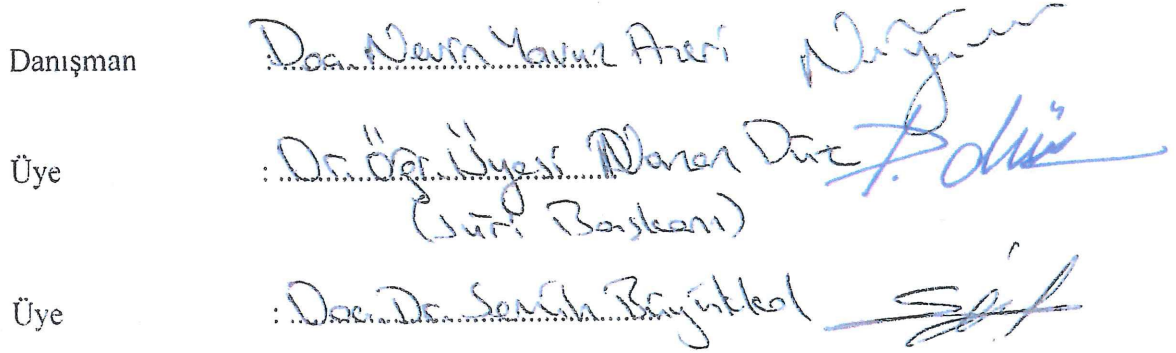 Danışman : Doç. Nevin Yavuz Azeri
Üye : Dr. Öğr. Üyesi Düz
(Jüri Başkanı)
Üye : Doç. Dr. Semih Büyükkol